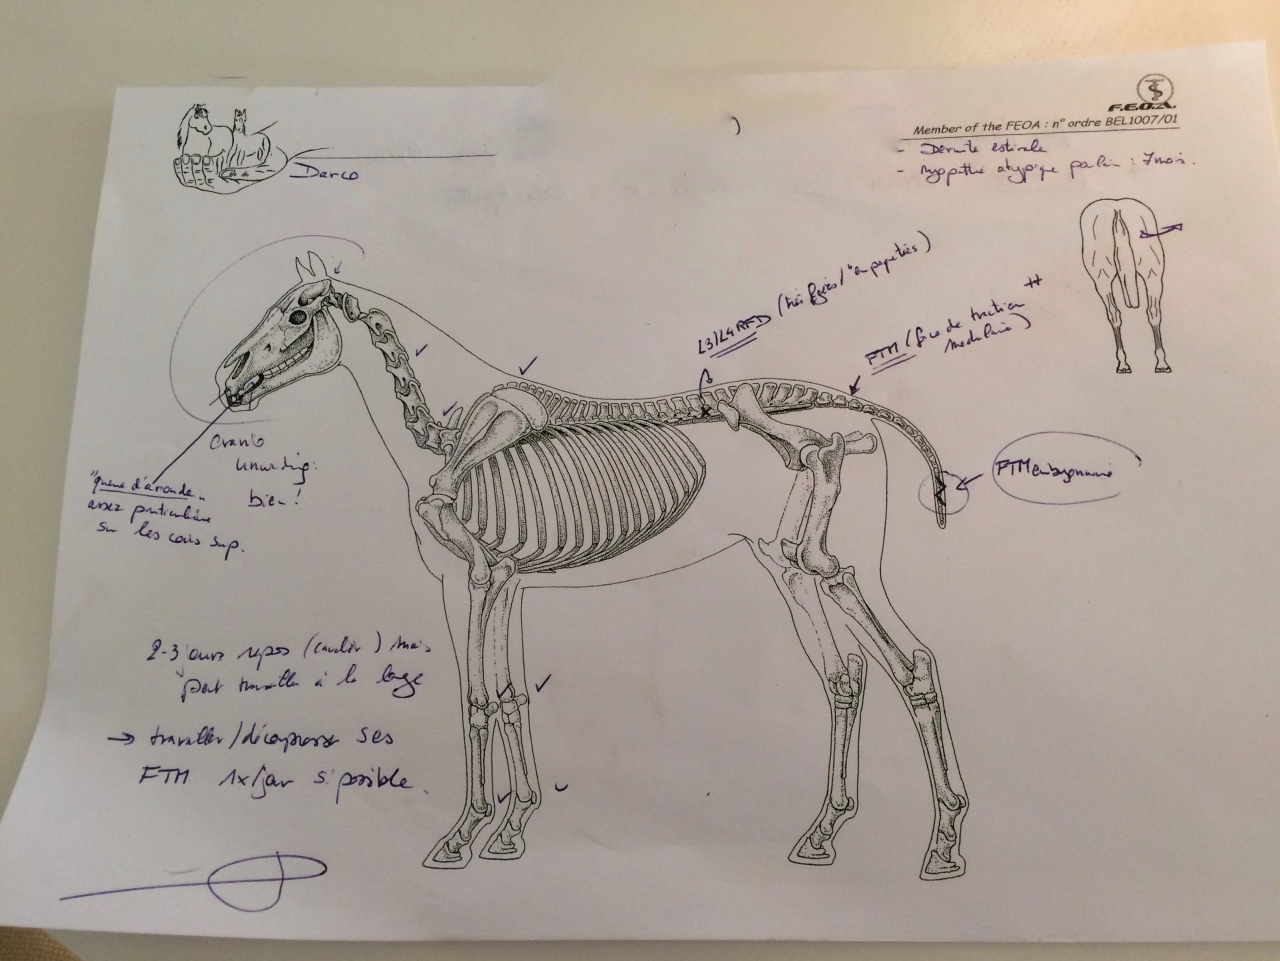 F.E.O.A.
Member of the FEOA : n° ordre BEL1007/01
- Dermite estivale
- Myopathie atypique poulain : 7 mois.
Darco
L3/L4 RFD (très figées / "en papettes)
FTM (force de traction ++
médullaire)
FTM
Cranio
unwinding:
bien !
"queue d'aronde"
assez particulière
sur les coins sup.
2-3 jours repos (couloir) mais
peut travailler à la longe
→ travailler/décompresser ses
FTM 1x/jour si possible.